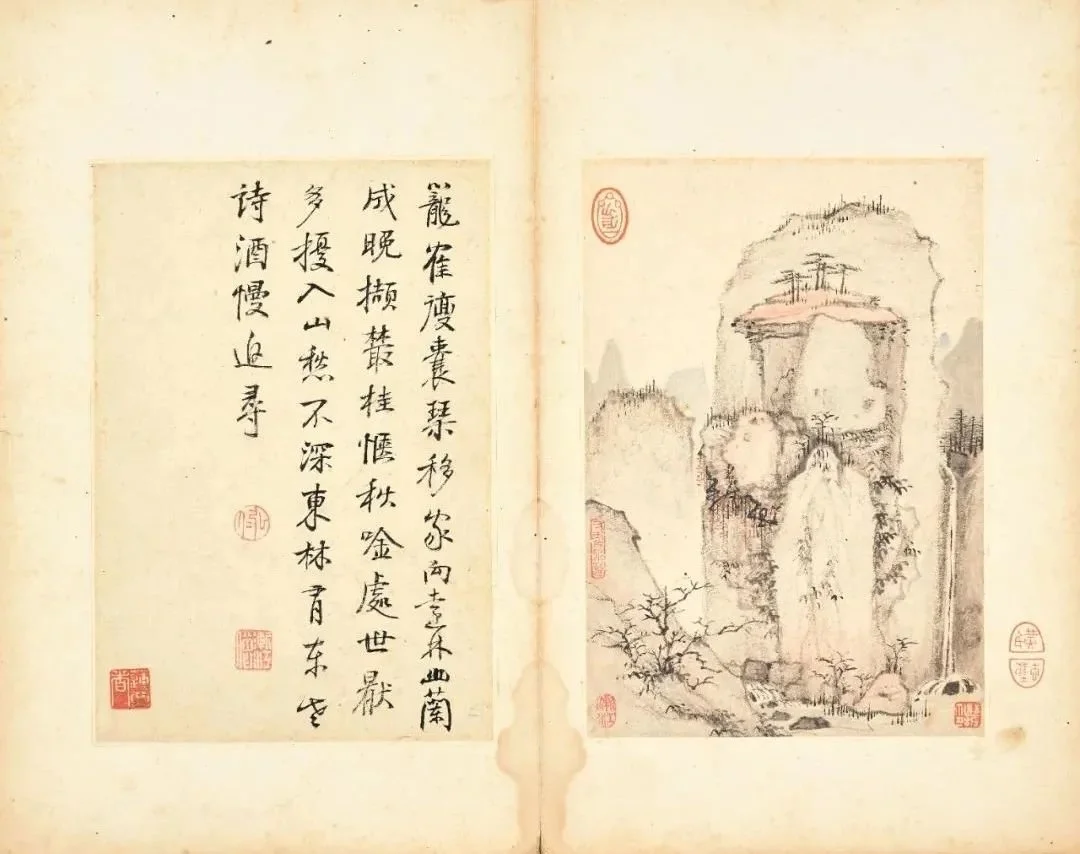 籠寉囊琹移家向遠林幽蘭
成晚擷叢桂愜秋唫處世厭
多擾入山愁不深東林有东老
詩酒慢追尋